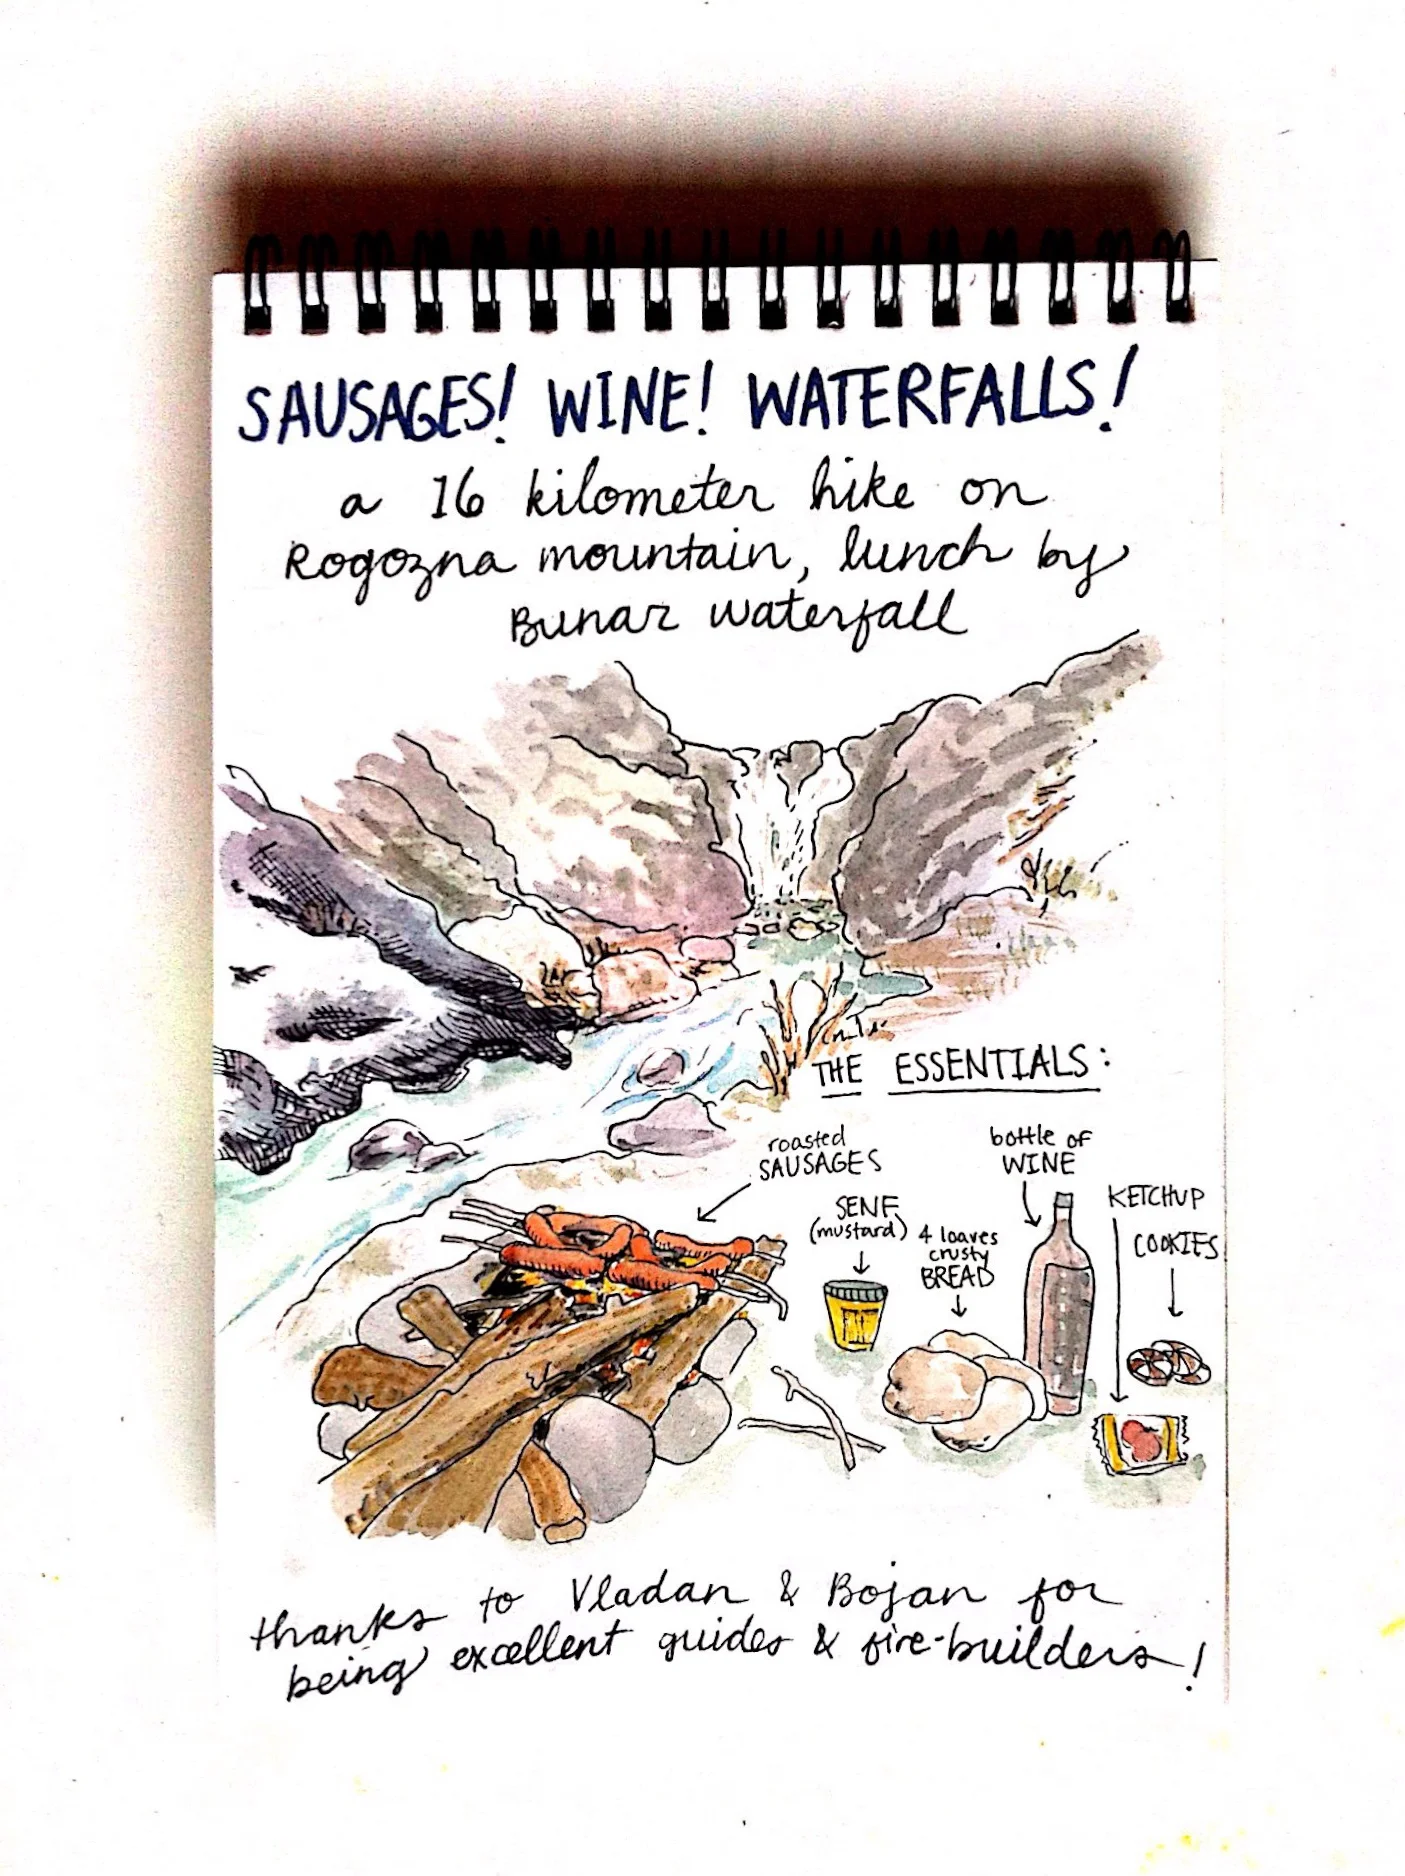 SAUSAGES! WINE! WATERFALLS!
a 16 kilometer hike on
Rogozna mountain, lunch by
Bunar waterfall
THE ESSENTIALS:
roasted
SAUSAGES
SENF
(mustard)
4 loaves
crusty
BREAD
bottle of
WINE
KETCHUP
COOKIES
thanks to Vladan & Bojan for
being excellent guides & fire-builders!